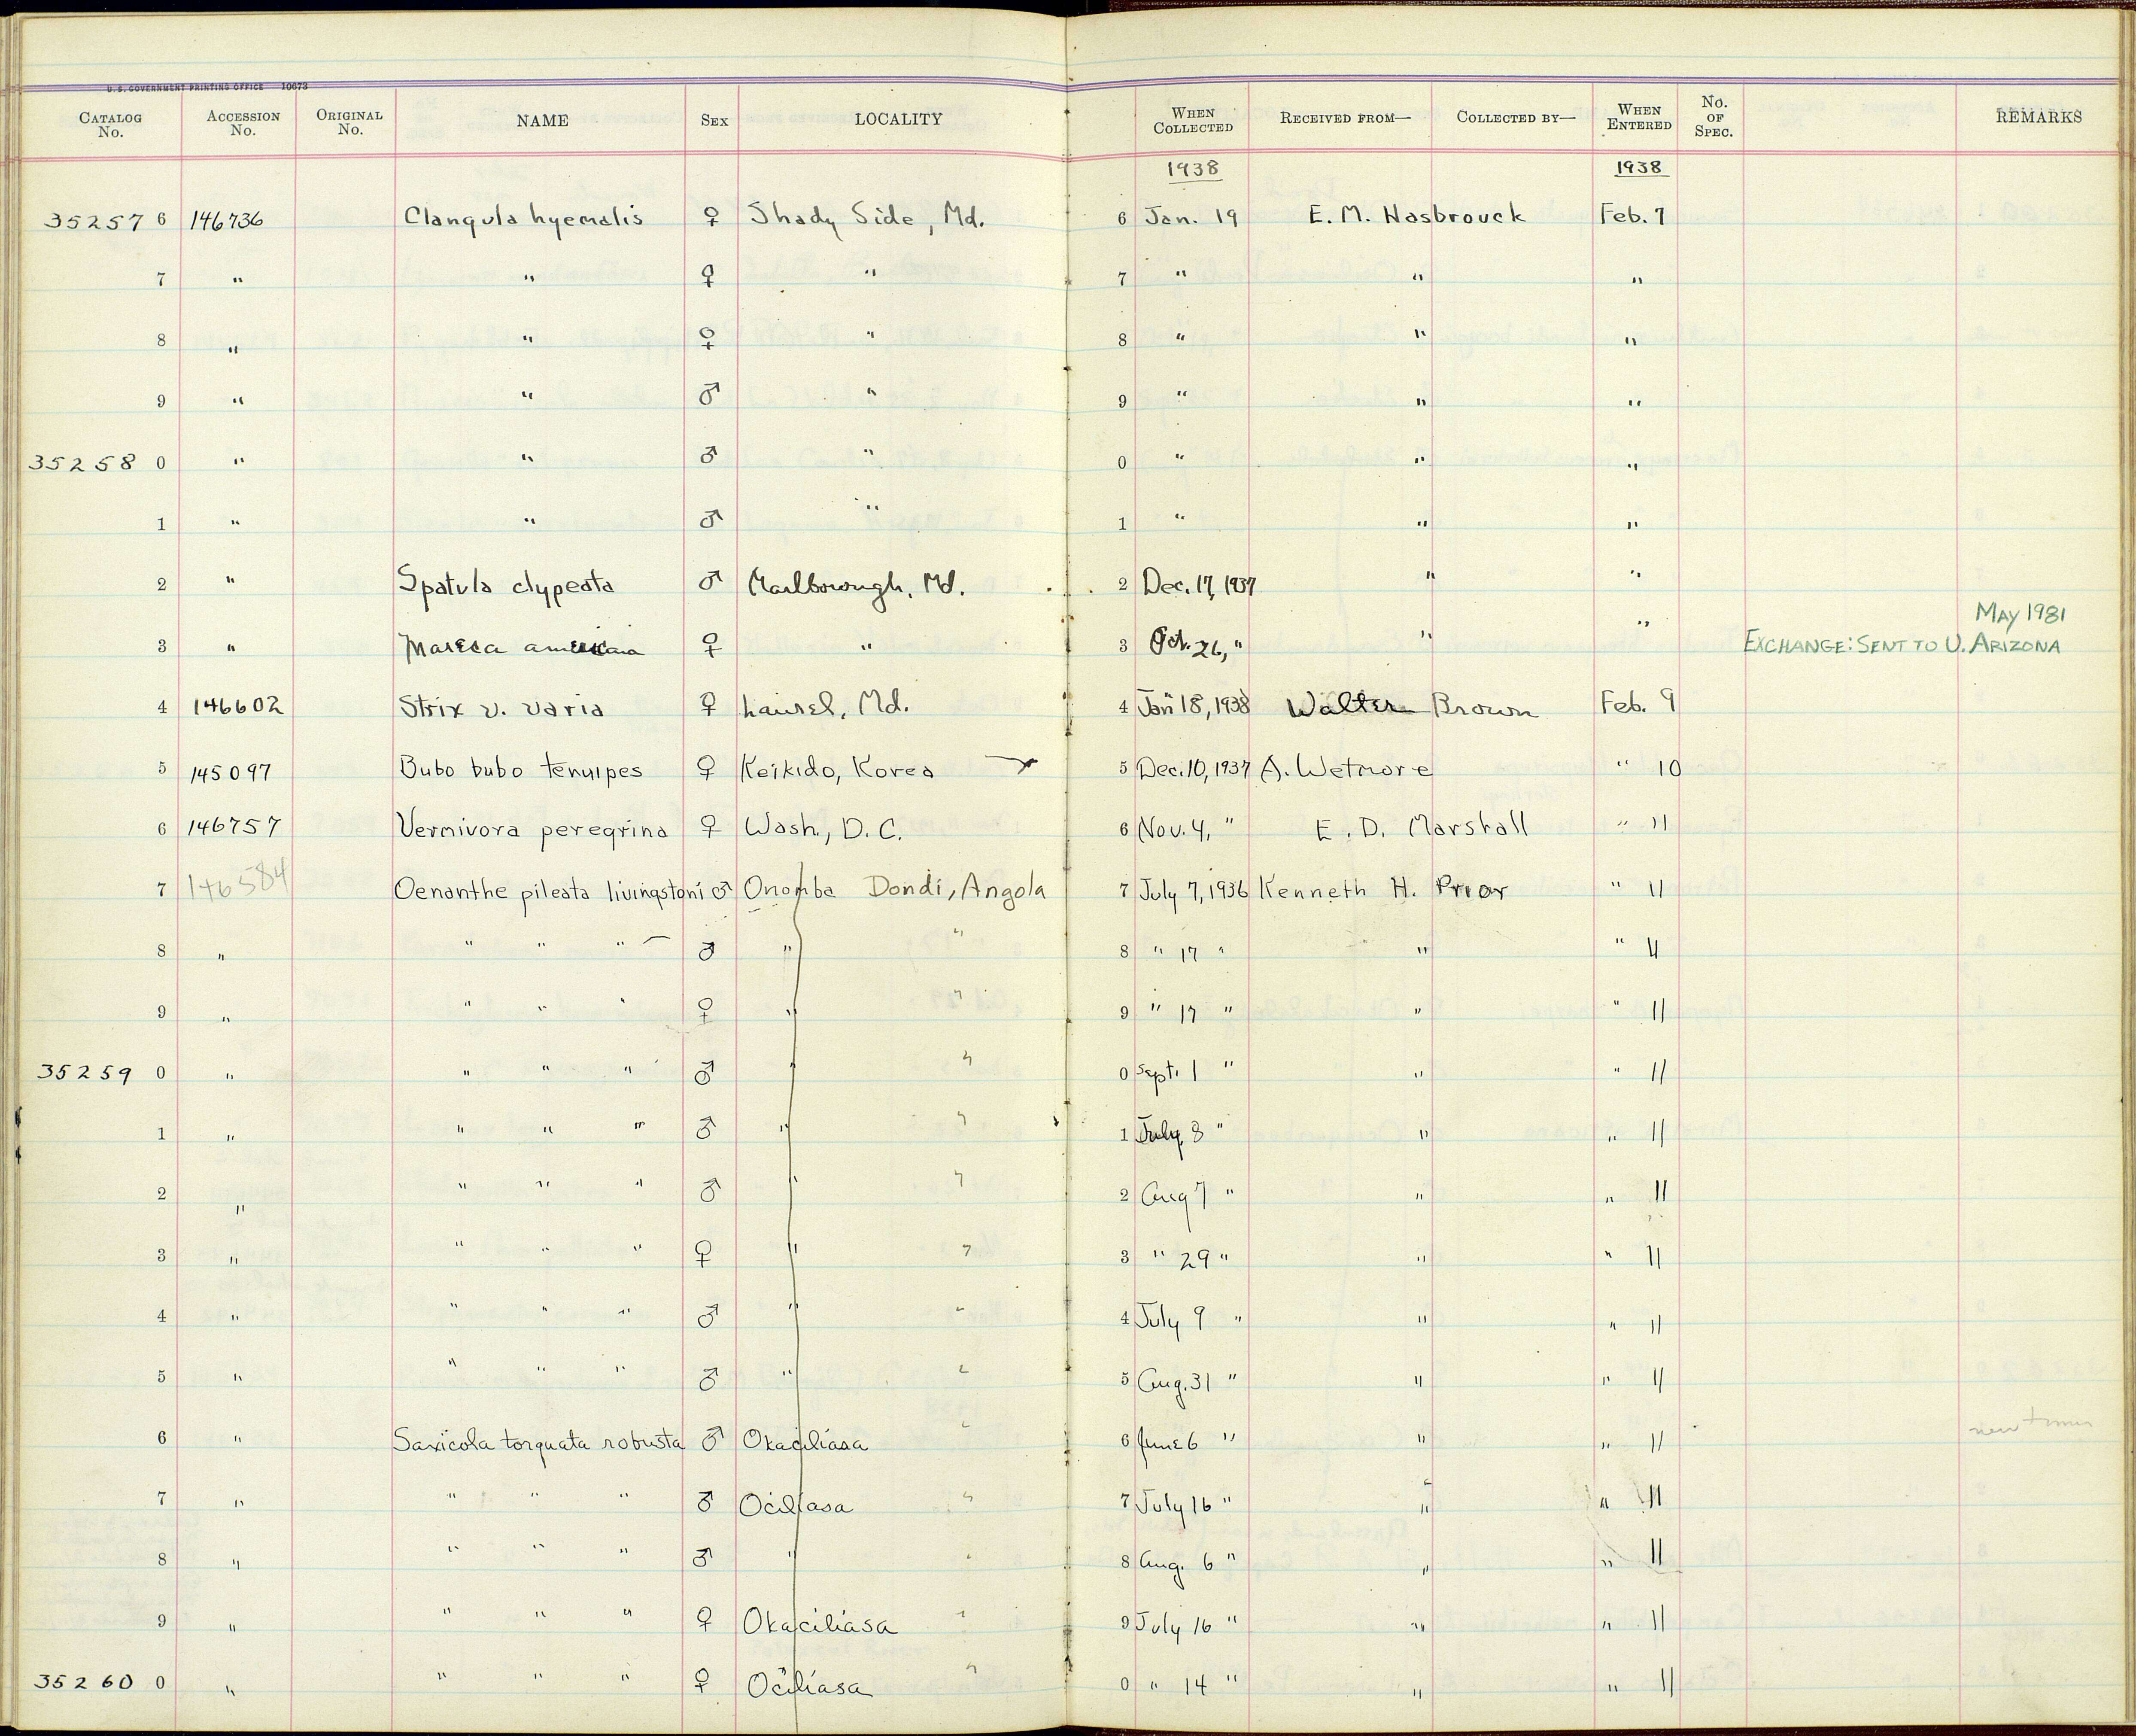 U.S. GOVERNMENT PRINTING OFFICE 10673
CATALOG No. ACCESSION No. ORIGINAL No. NAME SEX LOCALITY WHEN COLLECTED RECEIVED FROM— COLLECTED BY— WHEN ENTERED No. OF SPEC. REMARKS
1938 1938
35257 6 146736 Clangula hyemalis ♀ Shady Side, Md. 6 Jan. 19 E. M. Hasbrouck Feb. 7
7 " " ♀ " 7 " " "
8 " " ♀ " 8 " " "
9 " " ♂ " 9 " " "
35258 0 " " ♂ " 0 " " "
1 " " ♂ " 1 " " "
2 " Spatula clypeata ♂ Marlborough, Md. 2 Dec. 17, 1937 " "
May 1981
3 " Mareca americana ♀ " 3 Oct. 26, " " " EXCHANGE: SENT TO U. ARIZONA
4 146602 Strix v. varia ♀ Laurel, Md. 4 Jan 18, 1938 Walter Brown Feb. 9
5 145097 Bubo bubo tenuipes ♀ Keikido, Korea 5 Dec. 10, 1937 A. Wetmore " 10
6 146757 Vermivora peregrina ♀ Wash., D.C. 6 Nov. 4, " E. D. Marshall " 11
7 146584 Oenanthe pileata livingstoni ♂ Onomba Dondi, Angola 7 July 7, 1936 Kenneth H. Prior " 11
8 " " " " ♂ " " 8 " 17 " " " 11
9 " " " " ♀ " " 9 " 17 " " " 11
35259 0 " " " " ♂ " " 0 Sept. 1 " " " 11
1 " " " " ♂ " " 1 July 8 " " " 11
2 " " " " ♂ " " 2 Aug 7 " " " 11
3 " " " " ♀ " " 3 " 29 " " " 11
4 " " " " ♂ " " 4 July 9 " " " 11
5 " " " " ♂ " " 5 Aug. 31 " " " 11
6 " Saxicola torquata robusta ♂ Okaciliasa " 6 June 6 " " " 11 new
7 " " " " ♂ Ociliasa " 7 July 16 " " " 11
8 " " " " ♂ " " 8 Aug. 6 " " " 11
9 " " " " ♀ Okaciliasa " 9 July 16 " " " 11
35260 0 " " " " ♀ Ociliasa " 0 " 14 " " " 11